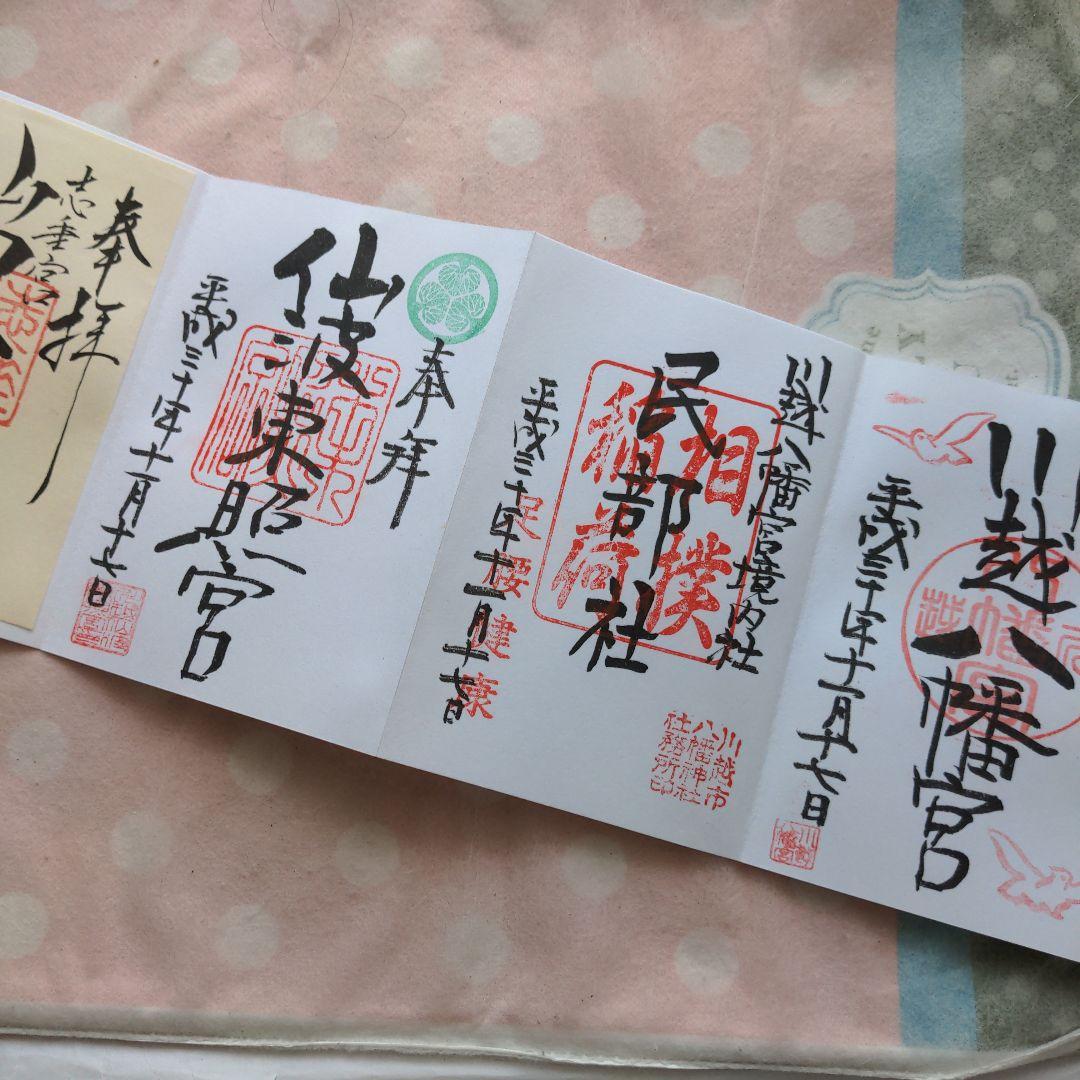 川越八幡宮
平成三十年十一月十七日
川越八幡宮境内社
民部社
相撲
稲荷
足腰健康
平成三十年十一月十七日
川越市
八幡神社
社務所印
奉拝
仙波東照宮
平成三十年十一月十七日
奉拝
志垂宮